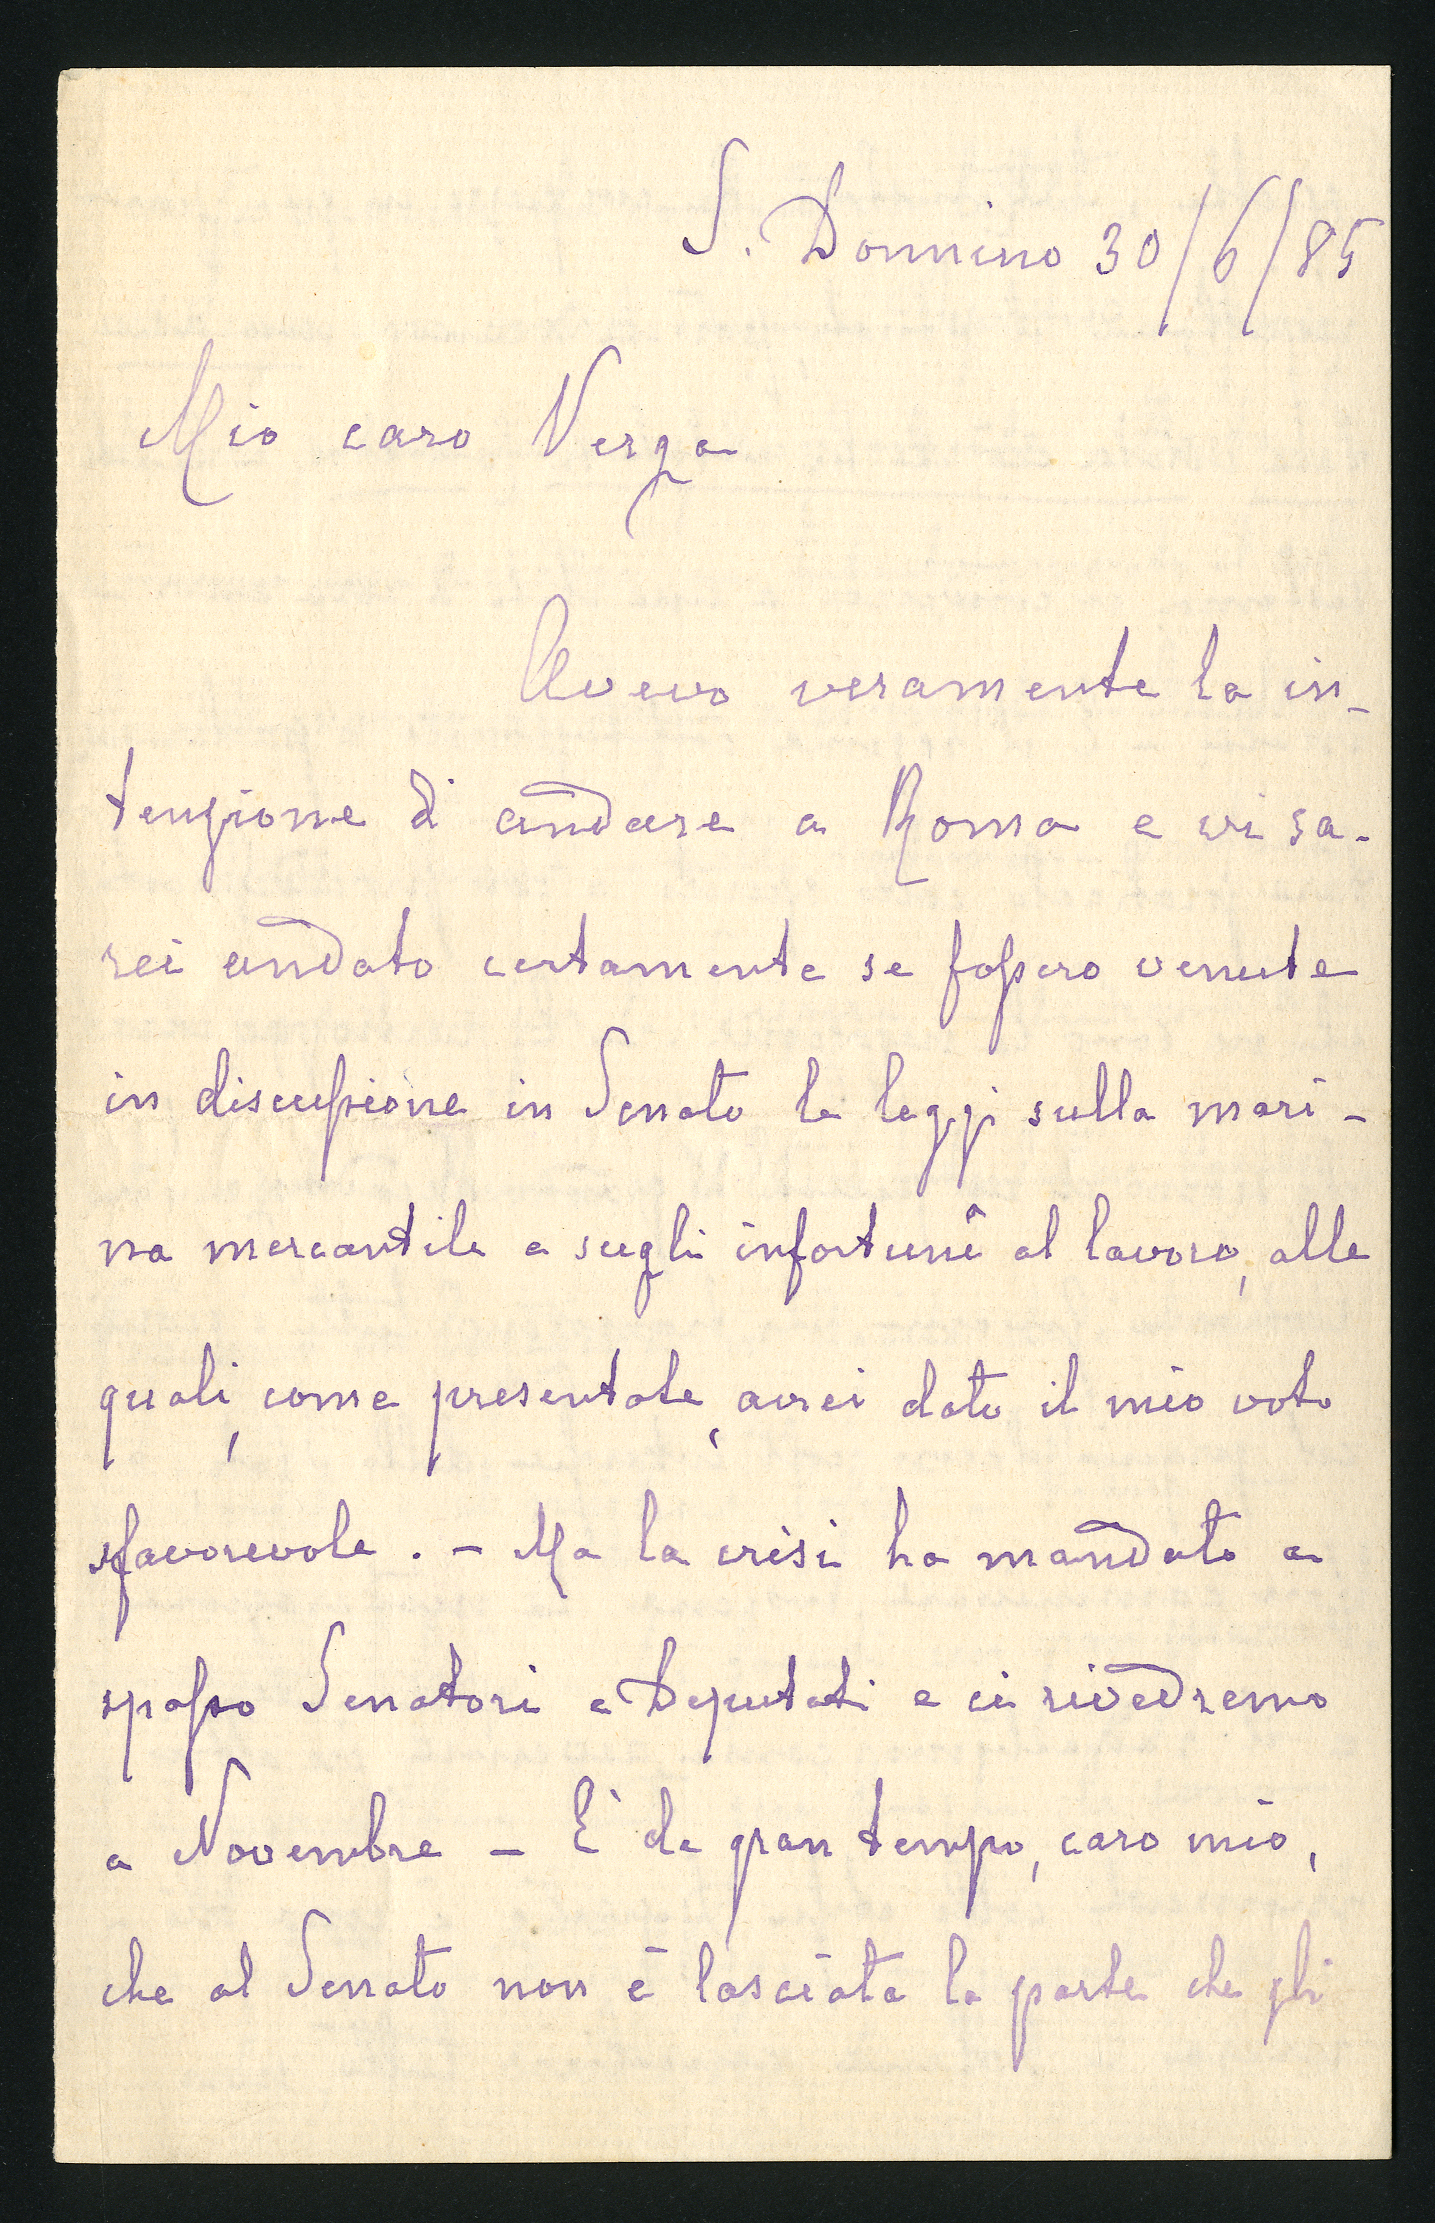 S. Donnino 30/6/85
Mio caro Verga
Avevo veramente la in-
tenzione di andare a Roma e vi sa-
rei andato certamente se fossero venute
in discussione in Senato le leggi sulla mari-
na mercantile e sugli infortunî al lavoro, alle
quali, come presentate, avrei dato il mio voto
sfavorevole. - Ma la crisi ha mandato a
spasso Senatori e Deputati e ci rivedremo
a Novembre - È da gran tempo, caro mio,
che al Senato non è lasciata la parte che gli